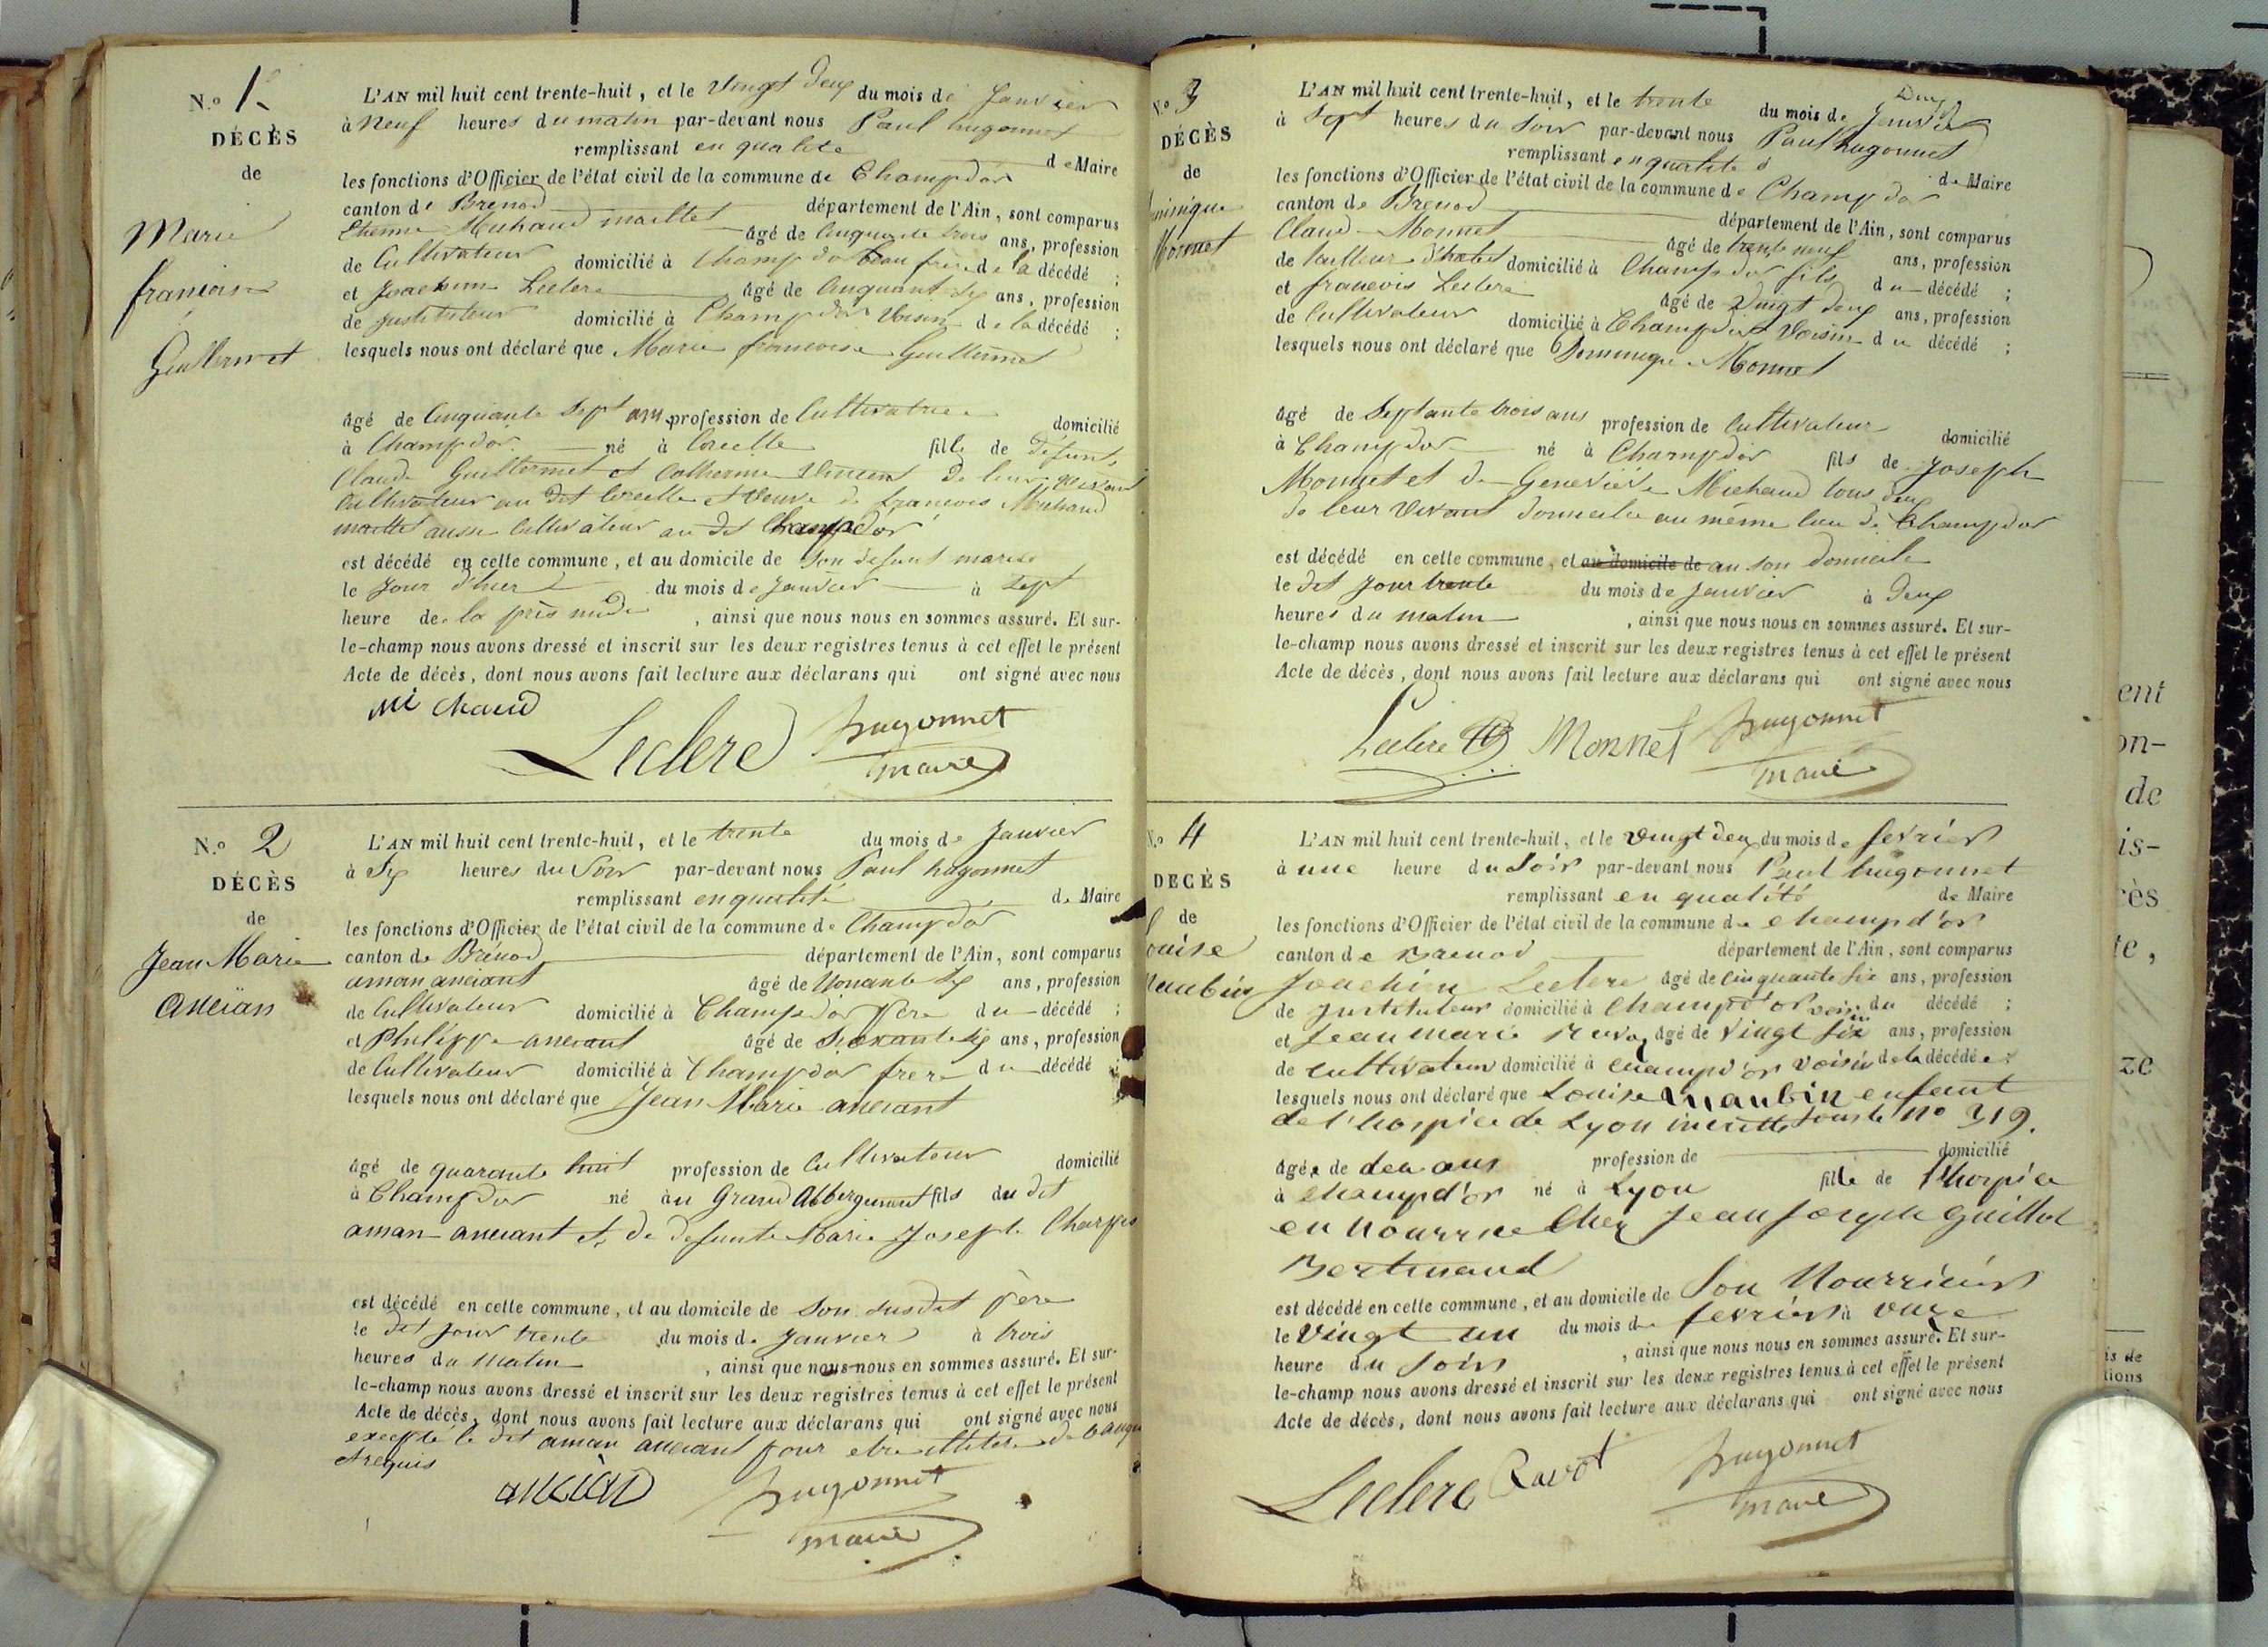 N.o 1
DÉCÈS
de
Marie
françoise
Guillermet
L'AN mil huit cent trente-huit, et le Vingt deux du mois de Janvier
à Neuf heures du matin par-devant nous Paul hugonnet
remplissant en qualité de Maire
les fonctions d'Officier de l'état civil de la commune de Champdor
canton de Brenod département de l'Ain, sont comparus
Etienne Michaud maillet âgé de Cinquante trois ans, profession
de Cultivateur domicilié à Champdor beau frère de la décédé ;
et Joachim Leclere âgé de Cinquant six ans, profession
de Justituteur domicilié à Champdor Voisin de la décédé ;
lesquels nous ont déclaré que Marie francoise Guillermet
âgé de Cinquante Sept ans profession de Cultivatrice domicilié
à Champdor né à Corcelle fille de défunts
Claude Guillermet et Catherine Vincent de leur vivant
Cultivateur au dit Corcelle et Veuve de francois Michaud
maillet aussi Cultivateur au dit Champdor
est décédé en cette commune, et au domicile de Son defunt marie
le Jour d'hier du mois de Janvier à Sept
heure de la près midi , ainsi que nous nous en sommes assuré. Et sur-
le-champ nous avons dressé et inscrit sur les deux registres tenus à cet effet le présent
Acte de décès, dont nous avons fait lecture aux déclarans qui ont signé avec nous
Mi chaud
Leclere hugonnet
maire
N.o 2
DÉCÈS
de
Jean Marie
Ancian
L'AN mil huit cent trente-huit, et le trente du mois de Janvier
à Six heures du Soir par-devant nous Paul hugonnet
remplissant en qualité de Maire
les fonctions d'Officier de l'état civil de la commune de Champdor
canton de Brénod département de l'Ain, sont comparus
aman anciant âgé de Nonante six ans, profession
de Cultivateur domicilié à Champdor Père du décédé ;
et Philippe anciant âgé de Soixante six ans, profession
de Cultivateur domicilié à Champdor frere du décédé ;
lesquels nous ont déclaré que Jean Marie anciant
âgé de quarante huit profession de Cultivateur domicilié
à Champdor né au Grand Abbergement fils du dit
aman anciant et de defunte Marie Joseph Charpi
est décédé en cette commune, et au domicile de Son susdit père
le dit Jour trente du mois de Janvier à trois
heures du Matin , ainsi que nous nous en sommes assuré. Et sur-
le-champ nous avons dressé et inscrit sur les deux registres tenus à cet effet le présent
Acte de décès, dont nous avons fait lecture aux déclarans qui ont signé avec nous
excepté le dit aman anciant pour etre illitere de ce
et requis
ancian hugonnet
maire
N.o 3
DÉCÈS
de
minique
Monnet
L'AN mil huit cent trente-huit, et le trente du mois de Janvier
à Sept heures du Soir par-devant nous Paul hugonnet
remplissant en qualité de Maire
les fonctions d'Officier de l'état civil de la commune de Champdor
canton de Brenod département de l'Ain, sont comparus
Claud Monnet âgé de trente neuf ans, profession
de tailleur d'habit domicilié à Champdor fils du décédé ;
et francois Leclere âgé de Vingt deux ans, profession
de Cultivateur domicilié à Champdor Voisin du décédé ;
lesquels nous ont déclaré que Dominique Monnet
âgé de Septante trois ans profession de Cultivateur domicilié
à Champdor né à Champdor fils de Joseph
Monnet et de Geneviève Michaud tous deux
de leur Vivant domicilie au même lieu de Champdor
est décédé en cette commune, et au domicile de au son domicile
le dit Jour trente du mois de Janvier à deux
heures du matin , ainsi que nous nous en sommes assuré. Et sur-
le-champ nous avons dressé et inscrit sur les deux registres tenus à cet effet le présent
Acte de décès, dont nous avons fait lecture aux déclarans qui ont signé avec nous
Leclere Monnet hugonnet
maire
N.o 4
DÉCÈS
de
Louise
Maubin
L'AN mil huit cent trente-huit, et le Vingt deux du mois de fevrier
à une heure du Soir par-devant nous Paul hugonnet
remplissant en qualité de Maire
les fonctions d'Officier de l'état civil de la commune de champd'or
canton de Brenod département de l'Ain, sont comparus
Joachin Leclere âgé de cinquante six ans, profession
de Justituteur domicilié à champd'or voisin du décédé ;
et Jean marie Ravot âgé de vingt six ans, profession
de cultivateur domicilié à champd'or voisin de la décédée ;
lesquels nous ont déclaré que Louise Maubin enfant
de l'hospice de Lyon inscritte sous le no 319.
âgée de deu ans profession de domicilié
à champd'or né à Lyon fille de l'hospice
en Nourrice Chez Jean Joseph Guillot
Bertinand
est décédé en cette commune, et au domicile de Son Nourricier
le Vingt un du mois de fevrier à onze
heure du Soir , ainsi que nous nous en sommes assuré. Et sur-
le-champ nous avons dressé et inscrit sur les deux registres tenus à cet effet le présent
Acte de décès, dont nous avons fait lecture aux déclarans qui ont signé avec nous
Leclere Ravot hugonnet
maire
ent
on-
de
is-
cès
te,
ze
is de
tions